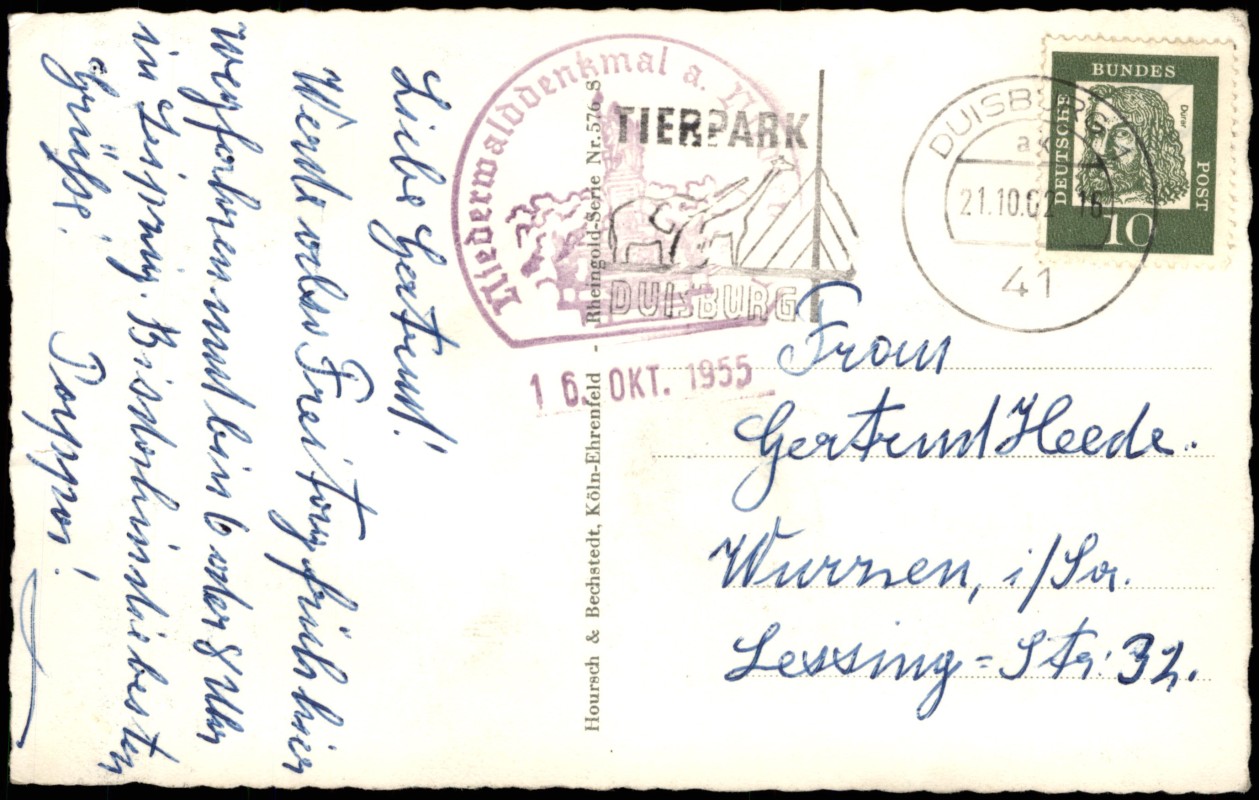 Liebe Gertrud!
Werde also Freitag früh hier
wegfahren und bin 6 oder 8 Uhr
in Leipzig. Bis dahin liebesten
Grüße!
Pappa!
Niederwalddenkmal a.
16. OKT. 1955
TIERPARK
DUISBURG
Hoursch & Bechstedt, Köln-Ehrenfeld - Rheingold-Serie Nr. 576 S
DUISBURG
21.10.62 - 16
41
DEUTSCHE
BUNDES
POST
Dürer
10
Frau
Gertrud Heede.
Wurzen, i/Sa.
Lessing-Str: 32.